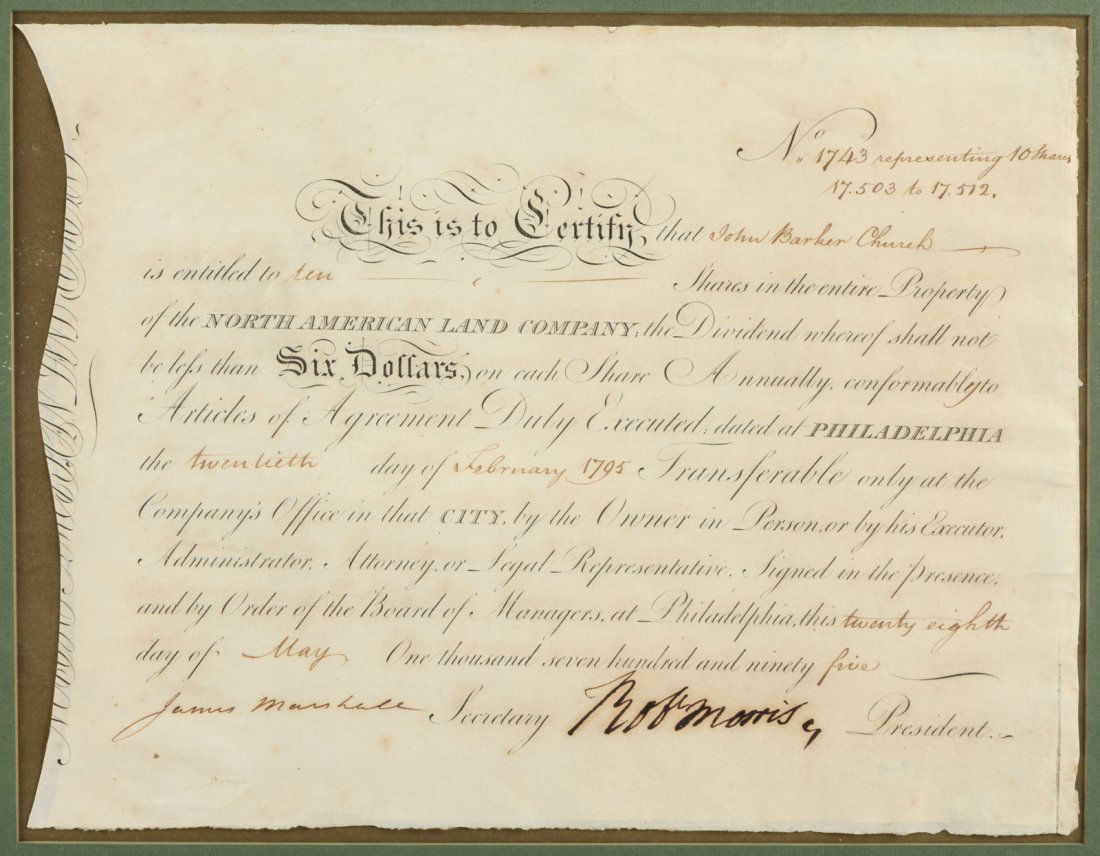 No. 1743 representing 10 Shares
17.503 to 17.512.
This is to Certify, that John Barker Church
is entitled to ten Shares in the entire Property
of the NORTH AMERICAN LAND COMPANY, the Dividend whereof shall not
be leſs than Six Dollars, on each Share Annually, conformably to
Articles of Agreement Duly Executed; dated at PHILADELPHIA
the twentieth day of February 1795 Transferable only at the
Company's Office in that CITY, by the Owner in Person, or by his Executor,
Administrator, Attorney, or Legal Representative. Signed in the presence,
and by Order of the Board of Managers, at Philadelphia, this twenty eighth
day of May One thousand seven hundred and ninety five
James Marshall Secretary Robt Morris President.